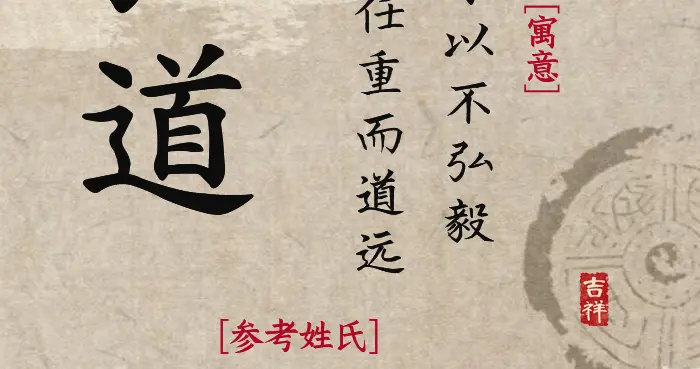 [寓意]
以不弘毅
任重而道远
道
吉祥
[参考姓氏]